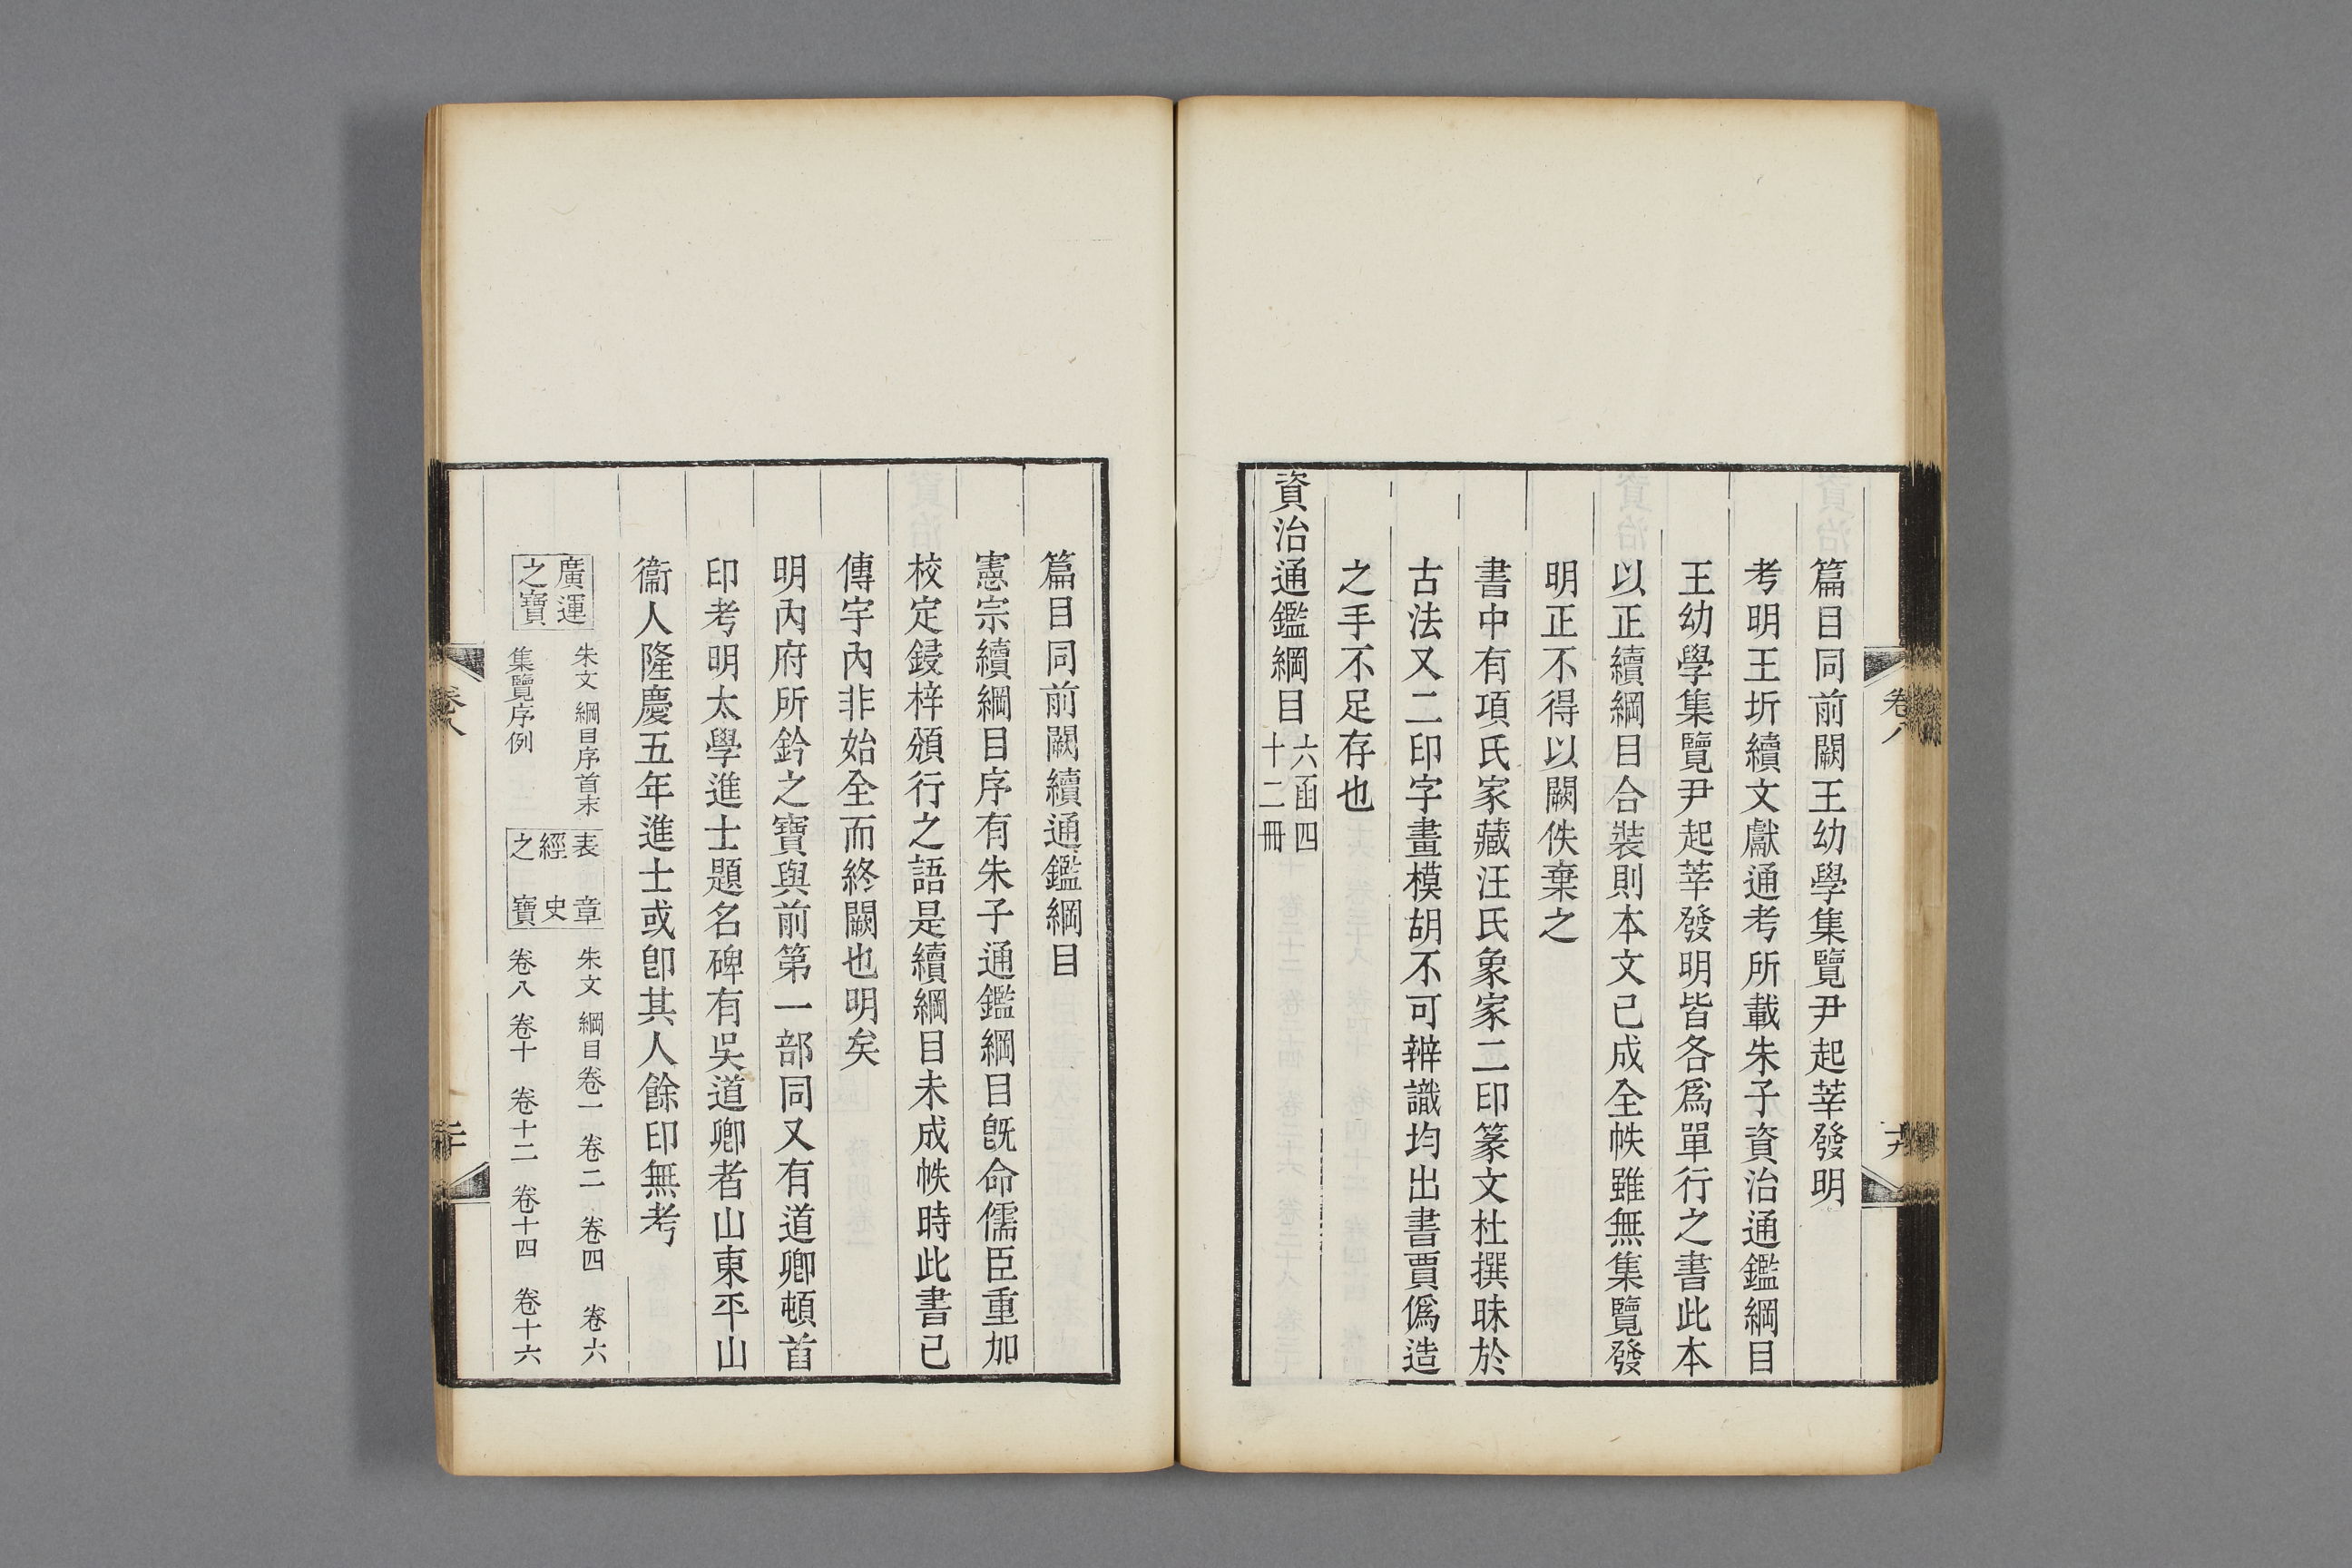 篇目同前闕王幼學集覽尹起莘發明
考明王圻續文獻通考所載朱子資治通鑑綱目
王幼學集覽尹起莘發明皆各爲單行之書此本
以正續綱目合裝則本文已成全帙雖無集覽發
明正不得以闕佚棄之
書中有項氏家藏汪氏象家二印篆文杜撰昧於
古法又二印字畫模胡不可辨識均出書賈僞造
之手不足存也
資治通鑑綱目六函四
十二冊
卷八
十九
篇目同前闕續通鑑綱目
憲宗續綱目序有朱子通鑑綱目旣命儒臣重加
校定鋟梓頒行之語是續綱目未成帙時此書已
傳宇內非始全而終闕也明矣
明內府所鈐之寶與前第一部同又有道卿頓首
印考明太學進士題名碑有吳道卿者山東平山
衞人隆慶五年進士或卽其人餘印無考
廣運
之寶
朱文 綱目序首末
集覽序例
表章
經史
之寶
朱文 綱目卷一 卷二 卷四 卷六
卷八 卷十 卷十二 卷十四 卷十六
卷八
二十